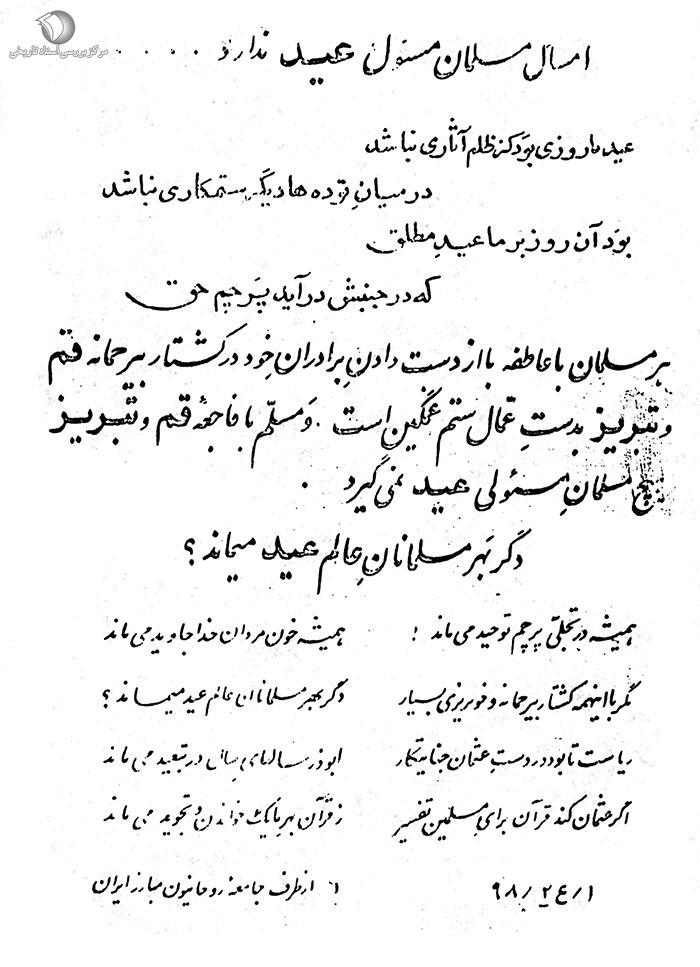 مرکز بررسی اسناد تاریخی
امسال مسلمان مسئول عید ندارد . . . . .
عید ما روزی بود کز ظلم آثاری نباشد
در میانِ توده ها دیگر ستمکاری نباشد
بوَد آن روز بر ما عیدِ مطلق
که در جنبش درآید پَرچم حق
هر مسلمان با عاطفه با از دست دادنِ برادران خود در کشتار بیرحمانه قم
و تبریز بدستِ عمّال ستم غمگین است . وَ مسلّم با فاجعهٔ قم و تبریز
هیچ مسلمانِ مسئولی عید نمی گیرد .
دگر بَهر مسلمانانِ عالم عید میماند ؟
همیشه در تجلّی پرچم توحید می ماند ! همیشه خون مردان خدا جاوید می ماند
نگر با اینهمه کشتار بیرحمانه و خونریزی بسیار دگر بهر مسلمانان عالم عید میماند ؟
ریاست تا بود در دستِ عثمان جنایتکار ابوذر سالهای سال در تبعید می ماند
اگر عثمان کند قرآن برای مسلمین تفسیر ز قرآن بهر ما یک خواندن و تجوید می ماند
۹۸/۲ع/۱ از طرف جامعه روحانیون مبارز ایران